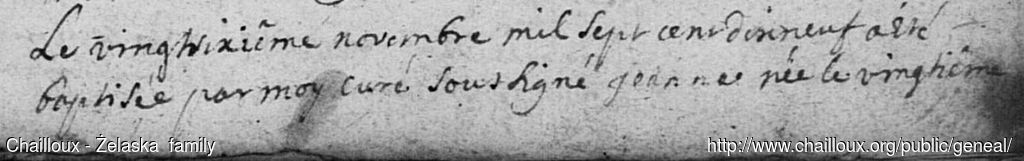 Le vingtsixiẽme novembre mil sept cent dixneuf a été
baptisée par moy curé soussigné jeanne née le vingtiẽme
Chailloux - Żelaska family
http://www.chailloux.org/public/geneal/